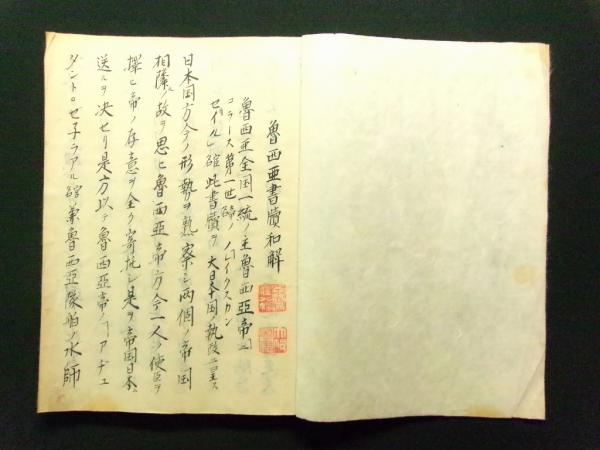 魯西亜書牘和解
魯西亜全国一統ノ主魯西亜帝ニ
コラース第一世帝ノ「レイクスカン
セイル」謹此書牘ヲ大日本国ノ執政ニ呈ス
日本国方今ノ形勢ヲ熟察シ両個ノ帝国
相隣ル故ヲ思ヒ魯西亜帝方今一人ノ使臣ヲ
撰ヒ帝ノ存意ヲ全ク寄托シ是ヲ帝国日本ニ
送ルヲ決セリ是方以テ魯西亜帝ノ「アヂュ
ダントゼ子ラアル」兼魯西亜隊舶ノ水師